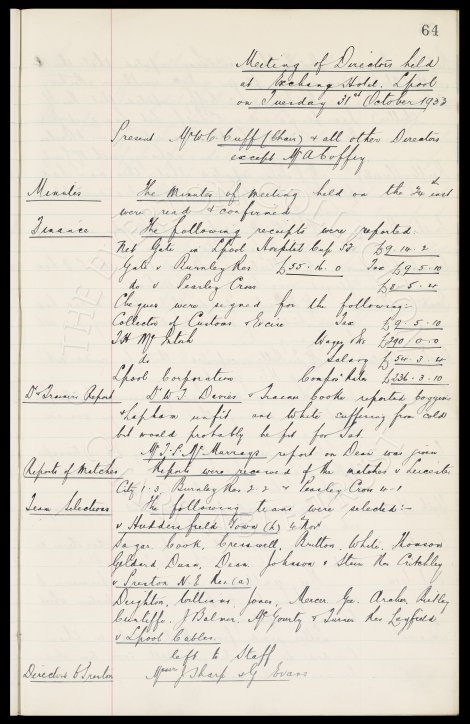 64
Meeting of Directors held
at Exchange Hotel, Lpool
on Tuesday 31st October 1933
Present Mr W.C. Cuff (Chair) & all other Directors
except Mr A Coffey
Minutes The Minutes of meeting held on the 24th inst
were read & confirmed
Finance The following receipts were reported:
Net Gate in Lpool Hospital Cup SF £9.14.2
Gate v Burnley Res £55.16.0 Tax £9.5.10
do v Paisley Cross £8.5.4
Cheques were signed for the following:-
Collector of Customs & Excise Tax £9.5.10
T.H. McIntosh Wages &c £290.0.0
do Salary £54.3.4
Lpool Corporation Compos' Rates £236.3.10
Dr & Trainers Report Dr W F Davies & Trainer Cooke reported Coggins
& Lapham unfit and White suffering from cold
but would probably be fit for Sat.
Mr T.P. McMurrays report on Dean was given
Reports of Matches Reports were received of the matches v Leicester
City 1-3, Burnley Res 2-2 & Paisley Cross 4-1
Team Selections The following teams were selected:-
v Huddersfield Town (h) 4 Nov
Sagar, Cook, Cresswell, Britton, White, Thomson
Geldard Dunn, Dean, Johnson & Stein Res Critchley
v Preston N.E. Res (a)
Deighton, Williams, Jones, Mercer, Gee, Archer, Birtley
Cunliffe, J Balmer, McGourty & Turner Res Leyfield
v Lpool Cables.
left to Staff
Directors to Preston Messrs J Sharp & G Evans